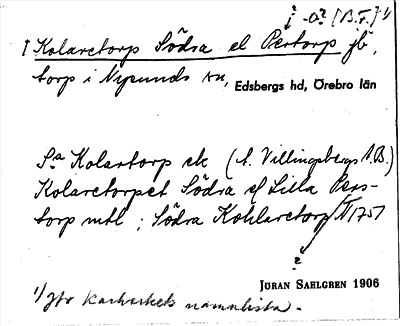 ? -o? [B.T.] 1/
Kolaretorp Södra el Pertorp jb,
torp i Nysunds sn, Edsbergs hd, Örebro län
Sa Kolartorp ek (t. Villingsbergs A.B.)
Kolaretorpet Södra el Lilla Pers-
torp mtl ; Södra Kohlaretorp 1757
?
JÖRAN SAHLGREN 1906
1/ Jfr kartverkets namnlista.